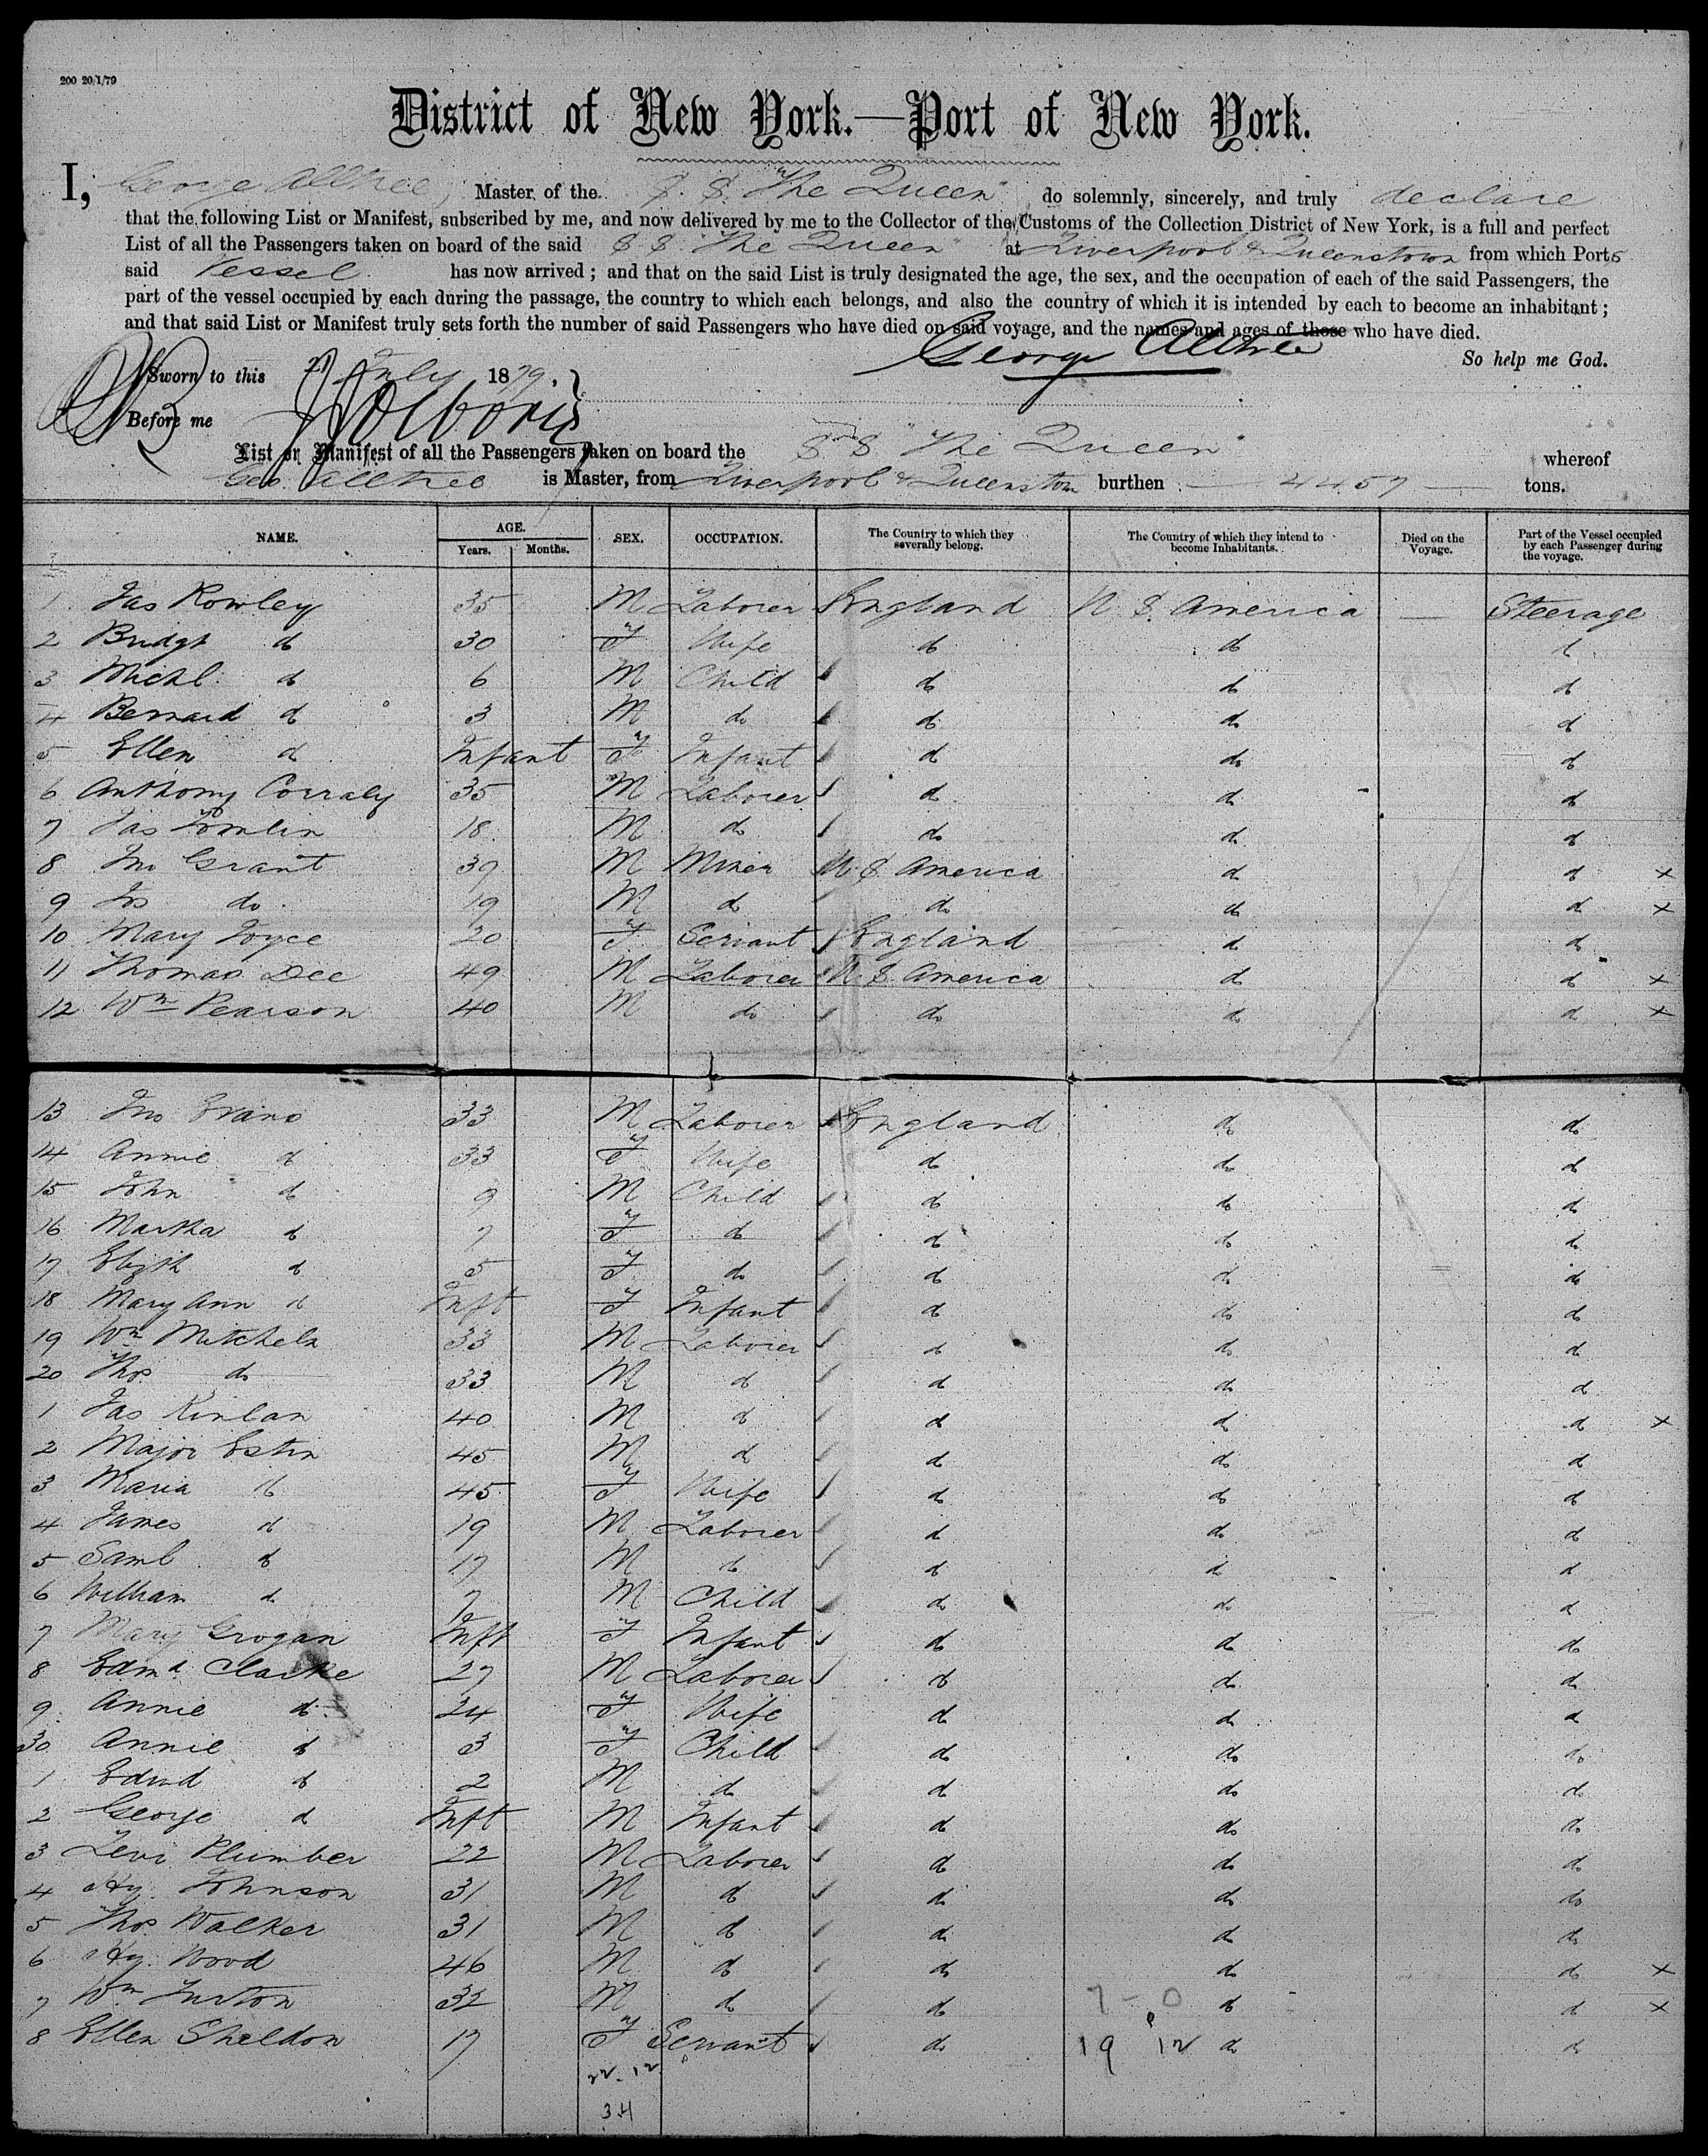 200 20/1/79
District of New York.—Port of New York.
I, George Alltree, Master of the S. S. "The Queen" do solemnly, sincerely, and truly declare
that the following List or Manifest, subscribed by me, and now delivered by me to the Collector of the Customs of the Collection District of New York, is a full and perfect
List of all the Passengers taken on board of the said S S "The Queen" at Liverpool & Queenstown from which Ports
said Vessel has now arrived; and that on the said List is truly designated the age, the sex, and the occupation of each of the said Passengers, the
part of the vessel occupied by each during the passage, the country to which each belongs, and also the country of which it is intended by each to become an inhabitant;
and that said List or Manifest truly sets forth the number of said Passengers who have died on said voyage, and the names and ages of those who have died.
George Alltree So help me God.
Sworn to this 21 July 1879.
Before me
List or Manifest of all the Passengers taken on board the S S "The Queen" whereof
Geo. Alltree is Master, from Liverpool & Queenstown burthen 4457 tons.
NAME. AGE. Years. Months. SEX. OCCUPATION. The Country to which they severally belong. The Country of which they intend to become Inhabitants. Died on the Voyage. Part of the Vessel occupied by each Passenger during the voyage.
1 Jas Rowley 35 M Laborer England U. S. America — Steerage
2 Bridgt do 30 F Wife do do do
3 Michl. do 6 M Child do do do
4 Bernard do 3 M do do do do
5 Ellen do Infant F Infant do do do
6 Anthony Corraly 35 M Laborer do do do
7 Jas Tomlin 18 M do do do do
8 Jno Grant 39 M Miner U S America do do x
9 Jos do 19 M do do do do x
10 Mary Joyce 20 F Servant England do do
11 Thomas Dee 49 M Laborer U. S. America do do x
12 Wm Pearson 40 M do do do do x
13 Jno Evans 33 M Laborer England do do
14 Annie do 33 F Wife do do do
15 John do 9 M Child do do do
16 Martha do 7 F do do do do
17 Elizth do 5 F do do do do
18 Mary Ann do Inft F Infant do do do
19 Wm Mitcheln 33 M Laborer do do do
20 Thos do 33 M do do do do
1 Jas Kinlan 40 M do do do do x
2 Major Estin 45 M do do do do
3 Maria do 45 F Wife do do do
4 James do 19 M Laborer do do do
5 Saml do 17 M do do do do
6 William do 7 M Child do do do
7 Mary Grogan Inft F Infant do do do
8 Edmd Clarke 27 M Laborer do do do
9 Annie do 24 F Wife do do do
30 Annie do 3 F Child do do do
1 Edwd do 2 M do do do do
2 George do Inft M Infant do do do
3 Levi Plumber 22 M Laborer do do do
4 Hy. Johnson 31 M do do do do
5 Thos Walker 31 M do do do do
6 Hy. Wood 46 M do do do do x
7 Wm Turton 32 M do do 7 - 0 do do x
8 Ellen Sheldon 17 F Servant do 19 12 do do
22. 12
34